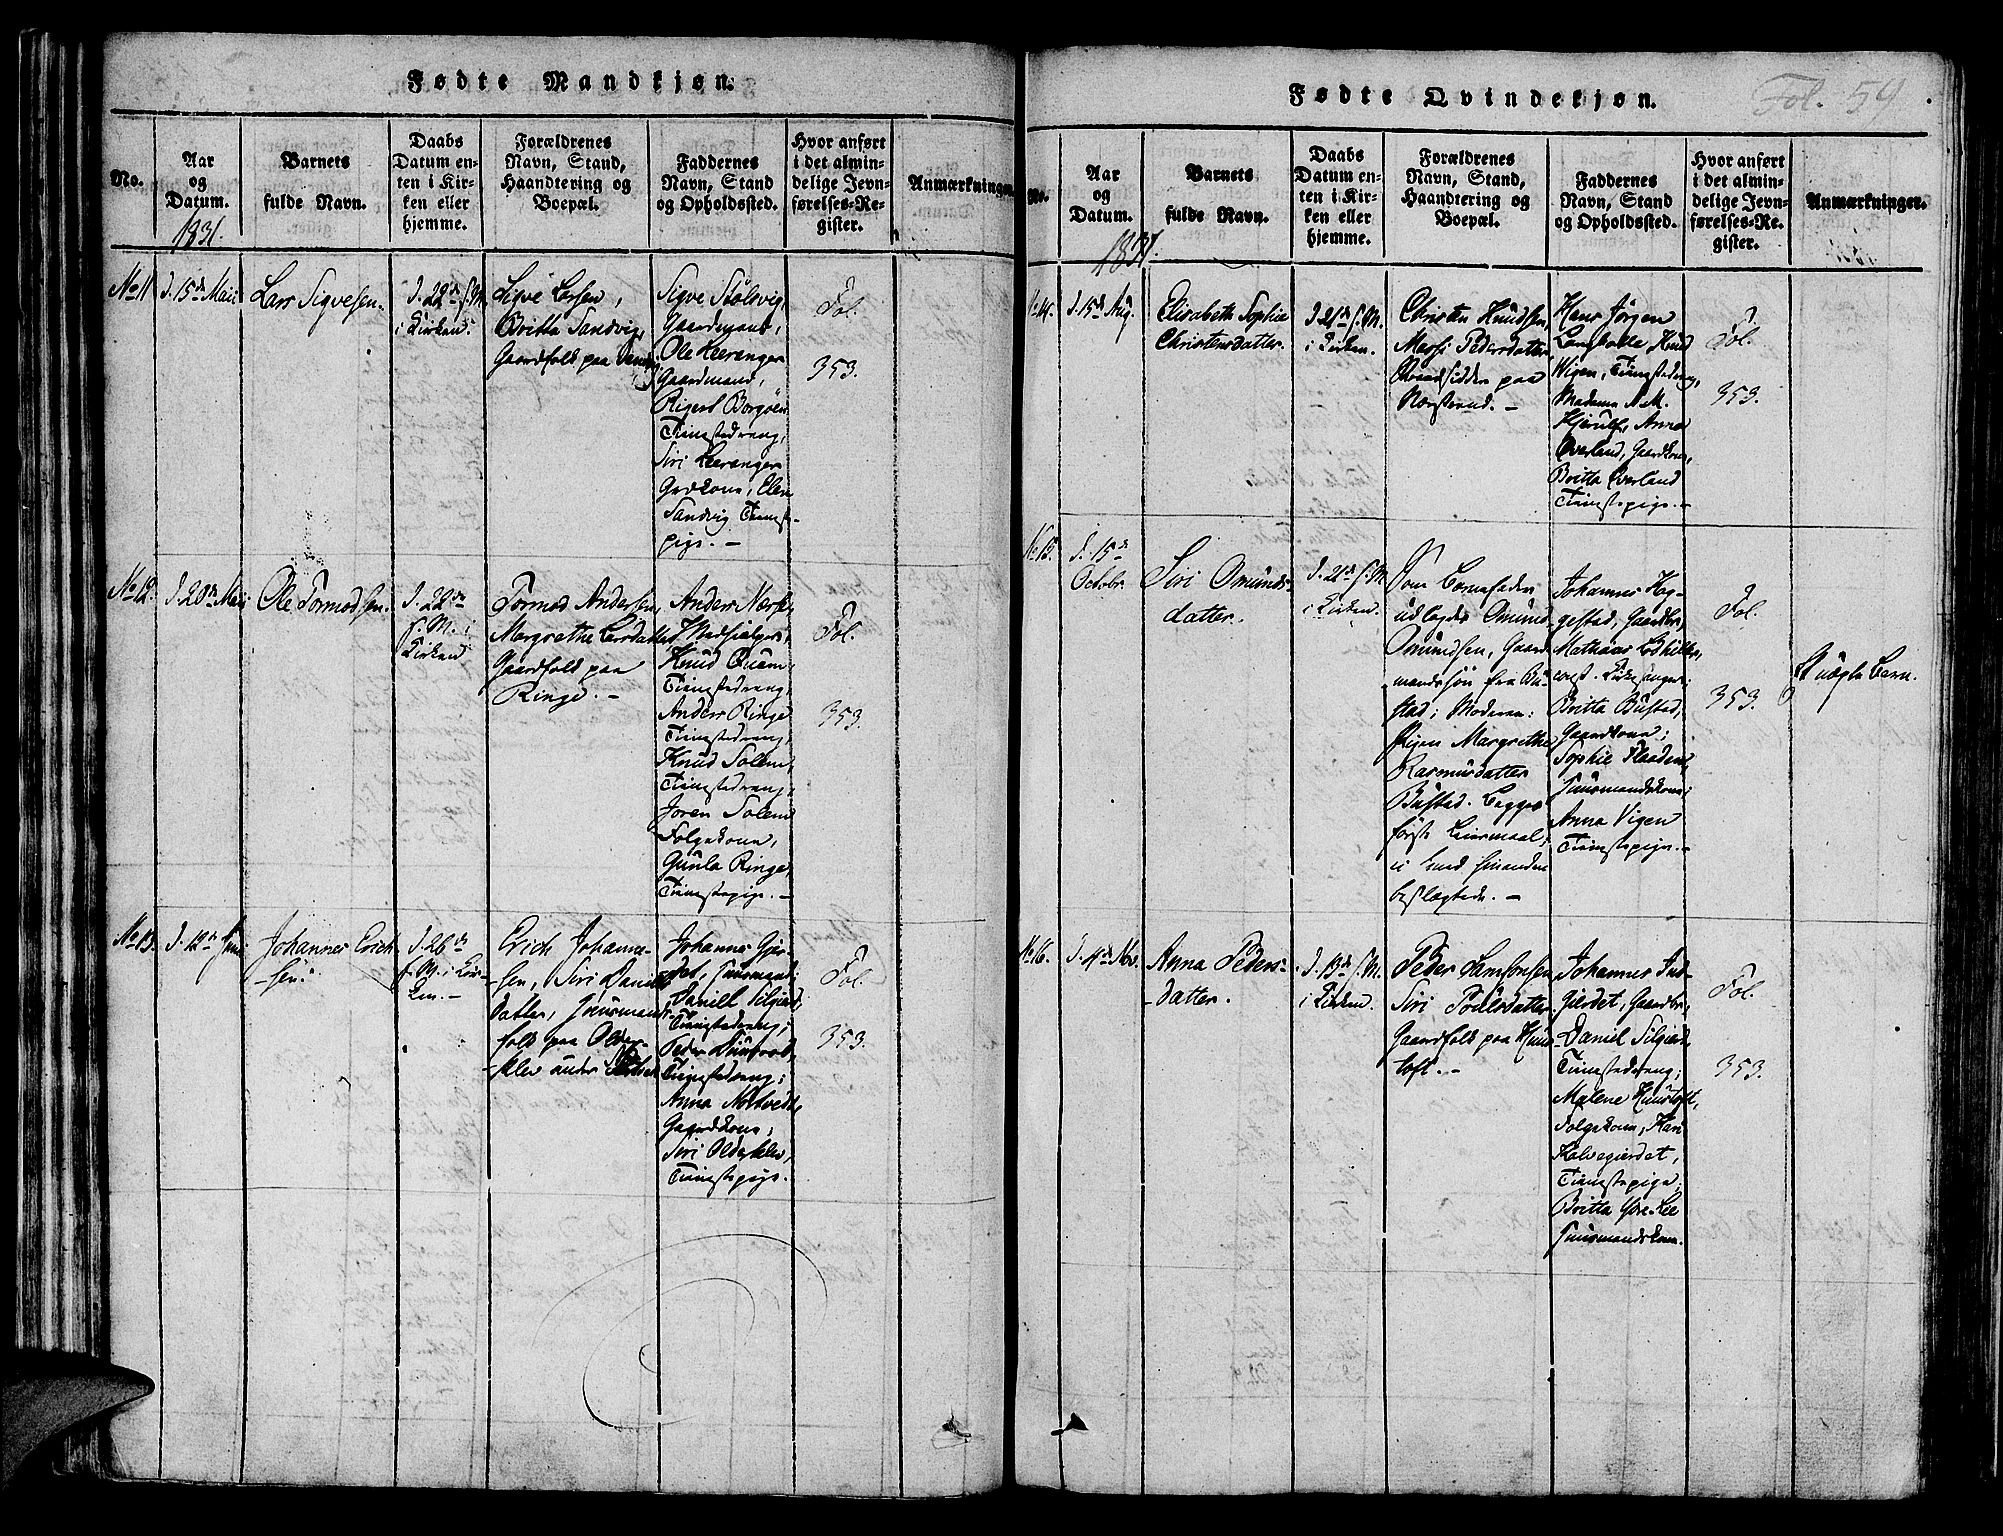 Fødte Mandkjøn.
No.
Aar
og
Datum.
1831.
Barnets
fulde Navn.
Daabs
Datum en-
ten i Kir-
ken eller
hjemme.
Forældrenes
Navn, Stand,
Haandtering og
Boepæl.
Faddernes
Navn, Stand
og Opholdssted.
Hvor anført
i det almin-
delige Jevn-
førelses-Re-
gister.
Anmærkninger.
No 11
d. 15de Maii
Lars Sigvesen.
d. 22de s. M.
i Kirken.
Sigve Larsen,
Britta Sandvig,
Gaardfolk paa
Sigve Stølsvig,
Gaardmand,
Ole Leeranger
Gaardmand,
Borgøen
Tienstedreng,
Siri Leeranger
Grdkone, Elen
Sandvig Tienste-
pige. -
Fol.
353.
No 12.
d. 20de Maii
Ole Tormodsen.
d. 22de
s. M. i
Kirken
Tormod Andersen,
Margrethe Larsdatter,
Gaardfolk paa
Ringe. -
Anders
Knud Quam,
Tienstedreng,
Anders Ringe
Tienstedreng,
Knud Solem,
Tienstedreng,
Joren Solem
Folgekone,
Gunla Ringe,
Tienstepige. -
Fol.
353.
No 13.
d. 12te Juni
Johannes Erich-
sen.
d. 26de
s. M. i Kir-
ken. -
Erich Johanne-
sen, Siri Daniels-
datter, Huusmands-
folk paa Older-
klev under
Johannes Gjer-
det, Huusmand;
Daniel Silgjerd,
Tienstedreng;
Peder
Tienstedreng;
Anna
Gaardkone;
Siri Olderklev,
Tienstepige.
Fol.
353.
Fødte Qvindekjøn.
Fol. 59
No.
Aar
og
Datum.
1831.
Barnets
fulde Navn.
Daabs
Datum en-
ten i Kir-
ken eller
hjemme.
Forældrenes
Navn, Stand,
Haandtering og
Boepæl.
Faddernes
Navn, Stand
og Opholdssted.
Hvor anført
i det almin-
delige Jevn-
førelses-Re-
gister.
Anmærkninger.
No 14.
d. 15de Aug.
Elisabeth Sophie
Christensdatter.
d. 21de s. M.
i Kirken.
Christen Knudsen,
Pedersdatter,
Strandsidder paa
Nærstrand. -
Hans Jørgen
Knud
Wigen, Tienstedreng,
Madame A. M.
Hjerulf, Anna
Øverland, Gaardkone,
Britta Øverland
Tienstepige. -
Fol.
353.
No 15.
d. 15de
Octobr
Siri Omunds-
datter.
d. 21de s. M.
i Kirken.
Som Barnefader
udlagdes Omund
Omundsen, Gaard-
mandssøn fra Bu-
stad; Moderen:
Pigen Margrethe
Rasmusdatter
Bustad. Begges
første Leiermaal,
ei med hinanden
beslægtede. -
Johannes Hog-
gestad, Gaardbr.,
Mathias
const. Kirkesanger;
Britta Bustad,
Gaardkone;
Sophie
Huusmandskone;
Anna Vigen
Tienstepige. -
Fol.
353.
Uægte Barn.
No 16.
d. 4de Nov.
Anna Peders-
datter.
d. 13de s. M.
i Kirken.
Peder Samsonsen
Siri Povelsdatter
Gaardfolk paa Huus-
toft. -
Johannes Ind-
gierdet, Gaardbr.,
Daniel Silgierd,
Tienstedreng;
Malene Huustoft,
Folgekone, Kari
Kalvegierdet,
Tienstepige;
Britta Øvre-Lie
Huusmandskone.
Fol.
353.